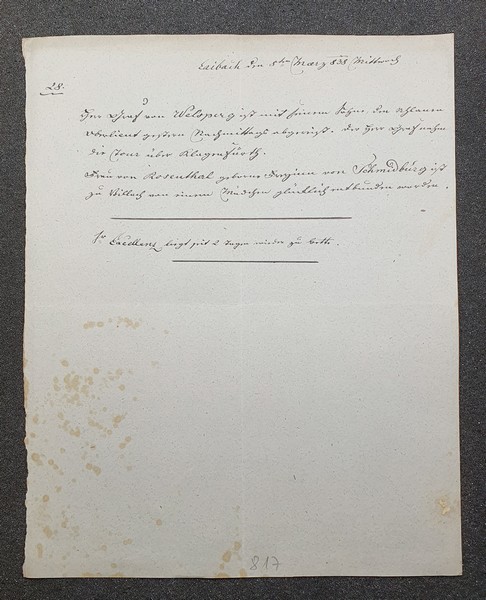 Laibach den 8ten März 838 Mittwoch
28.
Der Graf von Welsperg ist mit seinem Sohn, den Uhlanen
Oberlieut gestern Nachmittags abgereist. Der Herr Graf nahm
die Tour über Klagenfurth.
Frau von Rosenthal geborne Freyinn von Schmidburg ist
zu Villach von einem Mädchen glücklich entbunden worden.
liegt seit 2 Tagen wieder zu Bette.
817